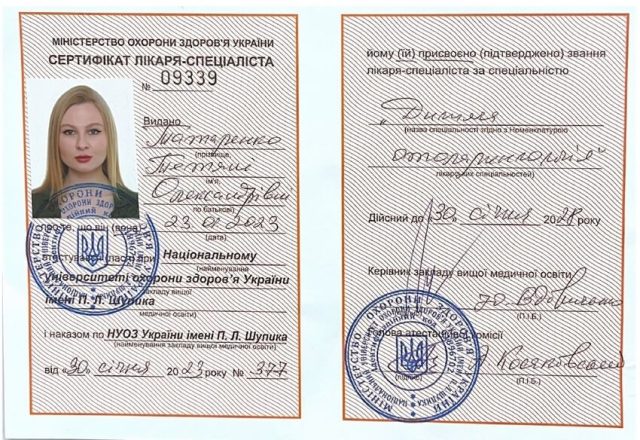 МІНІСТЕРСТВО ОХОРОНИ ЗДОРОВ'Я УКРАЇНИ
СЕРТИФІКАТ ЛІКАРЯ-СПЕЦІАЛІСТА
№ 09339
Видано
Татаренко
(прізвище,
Тетяні
ім'я,
Олександрівні
по батькові)
23.01.2023
(дата)
про те, що він (вона)
атестувався(лась) при Національному
(найменування
університеті охорони здоров'я України
закладу вищої
імені П. Л. Шупика
медичної освіти)
і наказом по НУОЗ України імені П. Л. Шупика
(найменування закладу вищої медичної освіти)
від «30» січня 2023 року № 377
йому (їй) присвоєно (підтверджено) звання
лікаря-спеціаліста за спеціальністю
„Дитяча
(назва спеціальності згідно з Номенклатурою
отоларингологія"
лікарських спеціальностей)
Дійсний до «30» січня 2028 року
Керівник закладу вищої медичної освіти
(П.І.Б.)
Голова атестаційної комісії
(підпис)
(П.І.Б.)